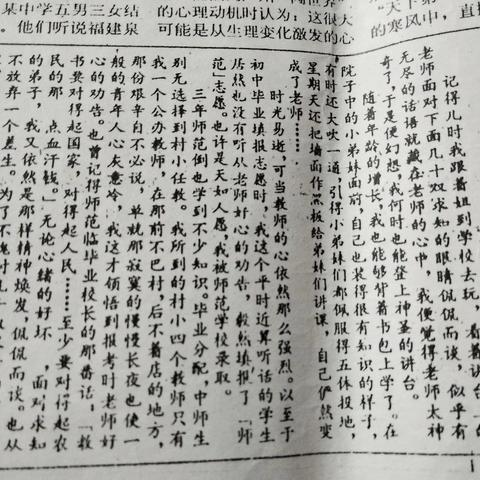 某中学五男三女结
。他们听说福建泉
的心理动机时认为：这很大
可能是从生理变化激发的心
“天下第
的寒风中，直
记得儿时我跟着姐到学校去玩，看着讲台上
老师面对下面几十双求知的眼睛侃侃而谈，似乎有
无尽的话语就藏在老师的心中，我便觉得老师太神
奇了，于是便幻想，我何时也能登上神圣的讲台。
随着年龄的增长，我也能够背着书包上学了。在
院子中的小弟妹面前，自己也装得很有知识的样子，
有时还大吹一通，引得小弟妹们都佩服得五体投地，
星期天还把墙面作黑板给弟妹们讲课，自己俨然变
成了老师……
时光易逝，可当教师的心依然那么强烈。以至于
初中毕业填报志愿时，我这个平时近算听话的学生
居然也没有听从老师好心的劝告，毅然填报了「师
范」志愿。也许是天如人愿，我被师范学校录取。
三年师范倒也学到不少知识。毕业分配，中师生
别无选择到村小任教。我所到的村小四个教师只有
我一个公办教师，在那前不巴村，后不着店的地方，
那份艰辛自不必说，单就那寂寞的慢慢长夜也使一
般的青年人心灰意冷，我这才领悟到报考时老师好
心的劝告。也曾记得师范临毕业校长的那番话：「教
书要对得起国家，对得起人民……至少要对得起农
民的那一点血汗钱。」无论心绪的好坏，面对求知
的弟子，我又依然是那样精神焕发，侃侃而谈。也从
不放弃一个差生。为了不愧对